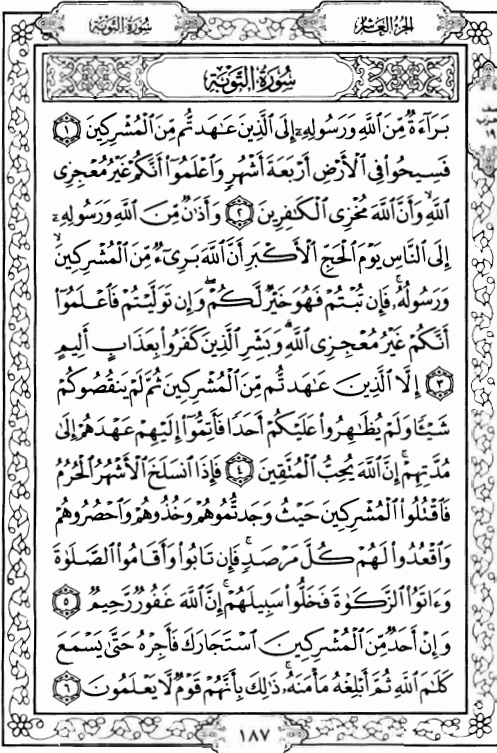 الجزء العاشر
سورة التوبة
سورة التوبة
بَرَآءَةٌ مِّنَ ٱللَّهِ وَرَسُولِهِۦٓ إِلَى ٱلَّذِينَ عَٰهَدتُّم مِّنَ ٱلْمُشْرِكِينَ ١
فَسِيحُوا۟ فِى ٱلْأَرْضِ أَرْبَعَةَ أَشْهُرٍ وَٱعْلَمُوٓا۟ أَنَّكُمْ غَيْرُ مُعْجِزِى
ٱللَّهِ ۙ وَأَنَّ ٱللَّهَ مُخْزِى ٱلْكَٰفِرِينَ ٢ وَأَذَٰنٌ مِّنَ ٱللَّهِ وَرَسُولِهِۦٓ
إِلَى ٱلنَّاسِ يَوْمَ ٱلْحَجِّ ٱلْأَكْبَرِ أَنَّ ٱللَّهَ بَرِىٓءٌ مِّنَ ٱلْمُشْرِكِينَ ۙ
وَرَسُولُهُۥ ۚ فَإِن تُبْتُمْ فَهُوَ خَيْرٌ لَّكُمْ ۖ وَإِن تَوَلَّيْتُمْ فَٱعْلَمُوٓا۟
أَنَّكُمْ غَيْرُ مُعْجِزِى ٱللَّهِ ۗ وَبَشِّرِ ٱلَّذِينَ كَفَرُوا۟ بِعَذَابٍ أَلِيمٍ
٣ إِلَّا ٱلَّذِينَ عَٰهَدتُّم مِّنَ ٱلْمُشْرِكِينَ ثُمَّ لَمْ يَنقُصُوكُمْ
شَيْـًٔا وَلَمْ يُظَٰهِرُوا۟ عَلَيْكُمْ أَحَدًا فَأَتِمُّوٓا۟ إِلَيْهِمْ عَهْدَهُمْ إِلَىٰ
مُدَّتِهِمْ ۚ إِنَّ ٱللَّهَ يُحِبُّ ٱلْمُتَّقِينَ ٤ فَإِذَا ٱنسَلَخَ ٱلْأَشْهُرُ ٱلْحُرُمُ
فَٱقْتُلُوا۟ ٱلْمُشْرِكِينَ حَيْثُ وَجَدتُّمُوهُمْ وَخُذُوهُمْ وَٱحْصُرُوهُمْ
وَٱقْعُدُوا۟ لَهُمْ كُلَّ مَرْصَدٍ ۚ فَإِن تَابُوا۟ وَأَقَامُوا۟ ٱلصَّلَوٰةَ
وَءَاتَوُا۟ ٱلزَّكَوٰةَ فَخَلُّوا۟ سَبِيلَهُمْ ۚ إِنَّ ٱللَّهَ غَفُورٌ رَّحِيمٌ ٥
وَإِنْ أَحَدٌ مِّنَ ٱلْمُشْرِكِينَ ٱسْتَجَارَكَ فَأَجِرْهُ حَتَّىٰ يَسْمَعَ
كَلَٰمَ ٱللَّهِ ثُمَّ أَبْلِغْهُ مَأْمَنَهُۥ ۚ ذَٰلِكَ بِأَنَّهُمْ قَوْمٌ لَّا يَعْلَمُونَ ٦
١٨٧